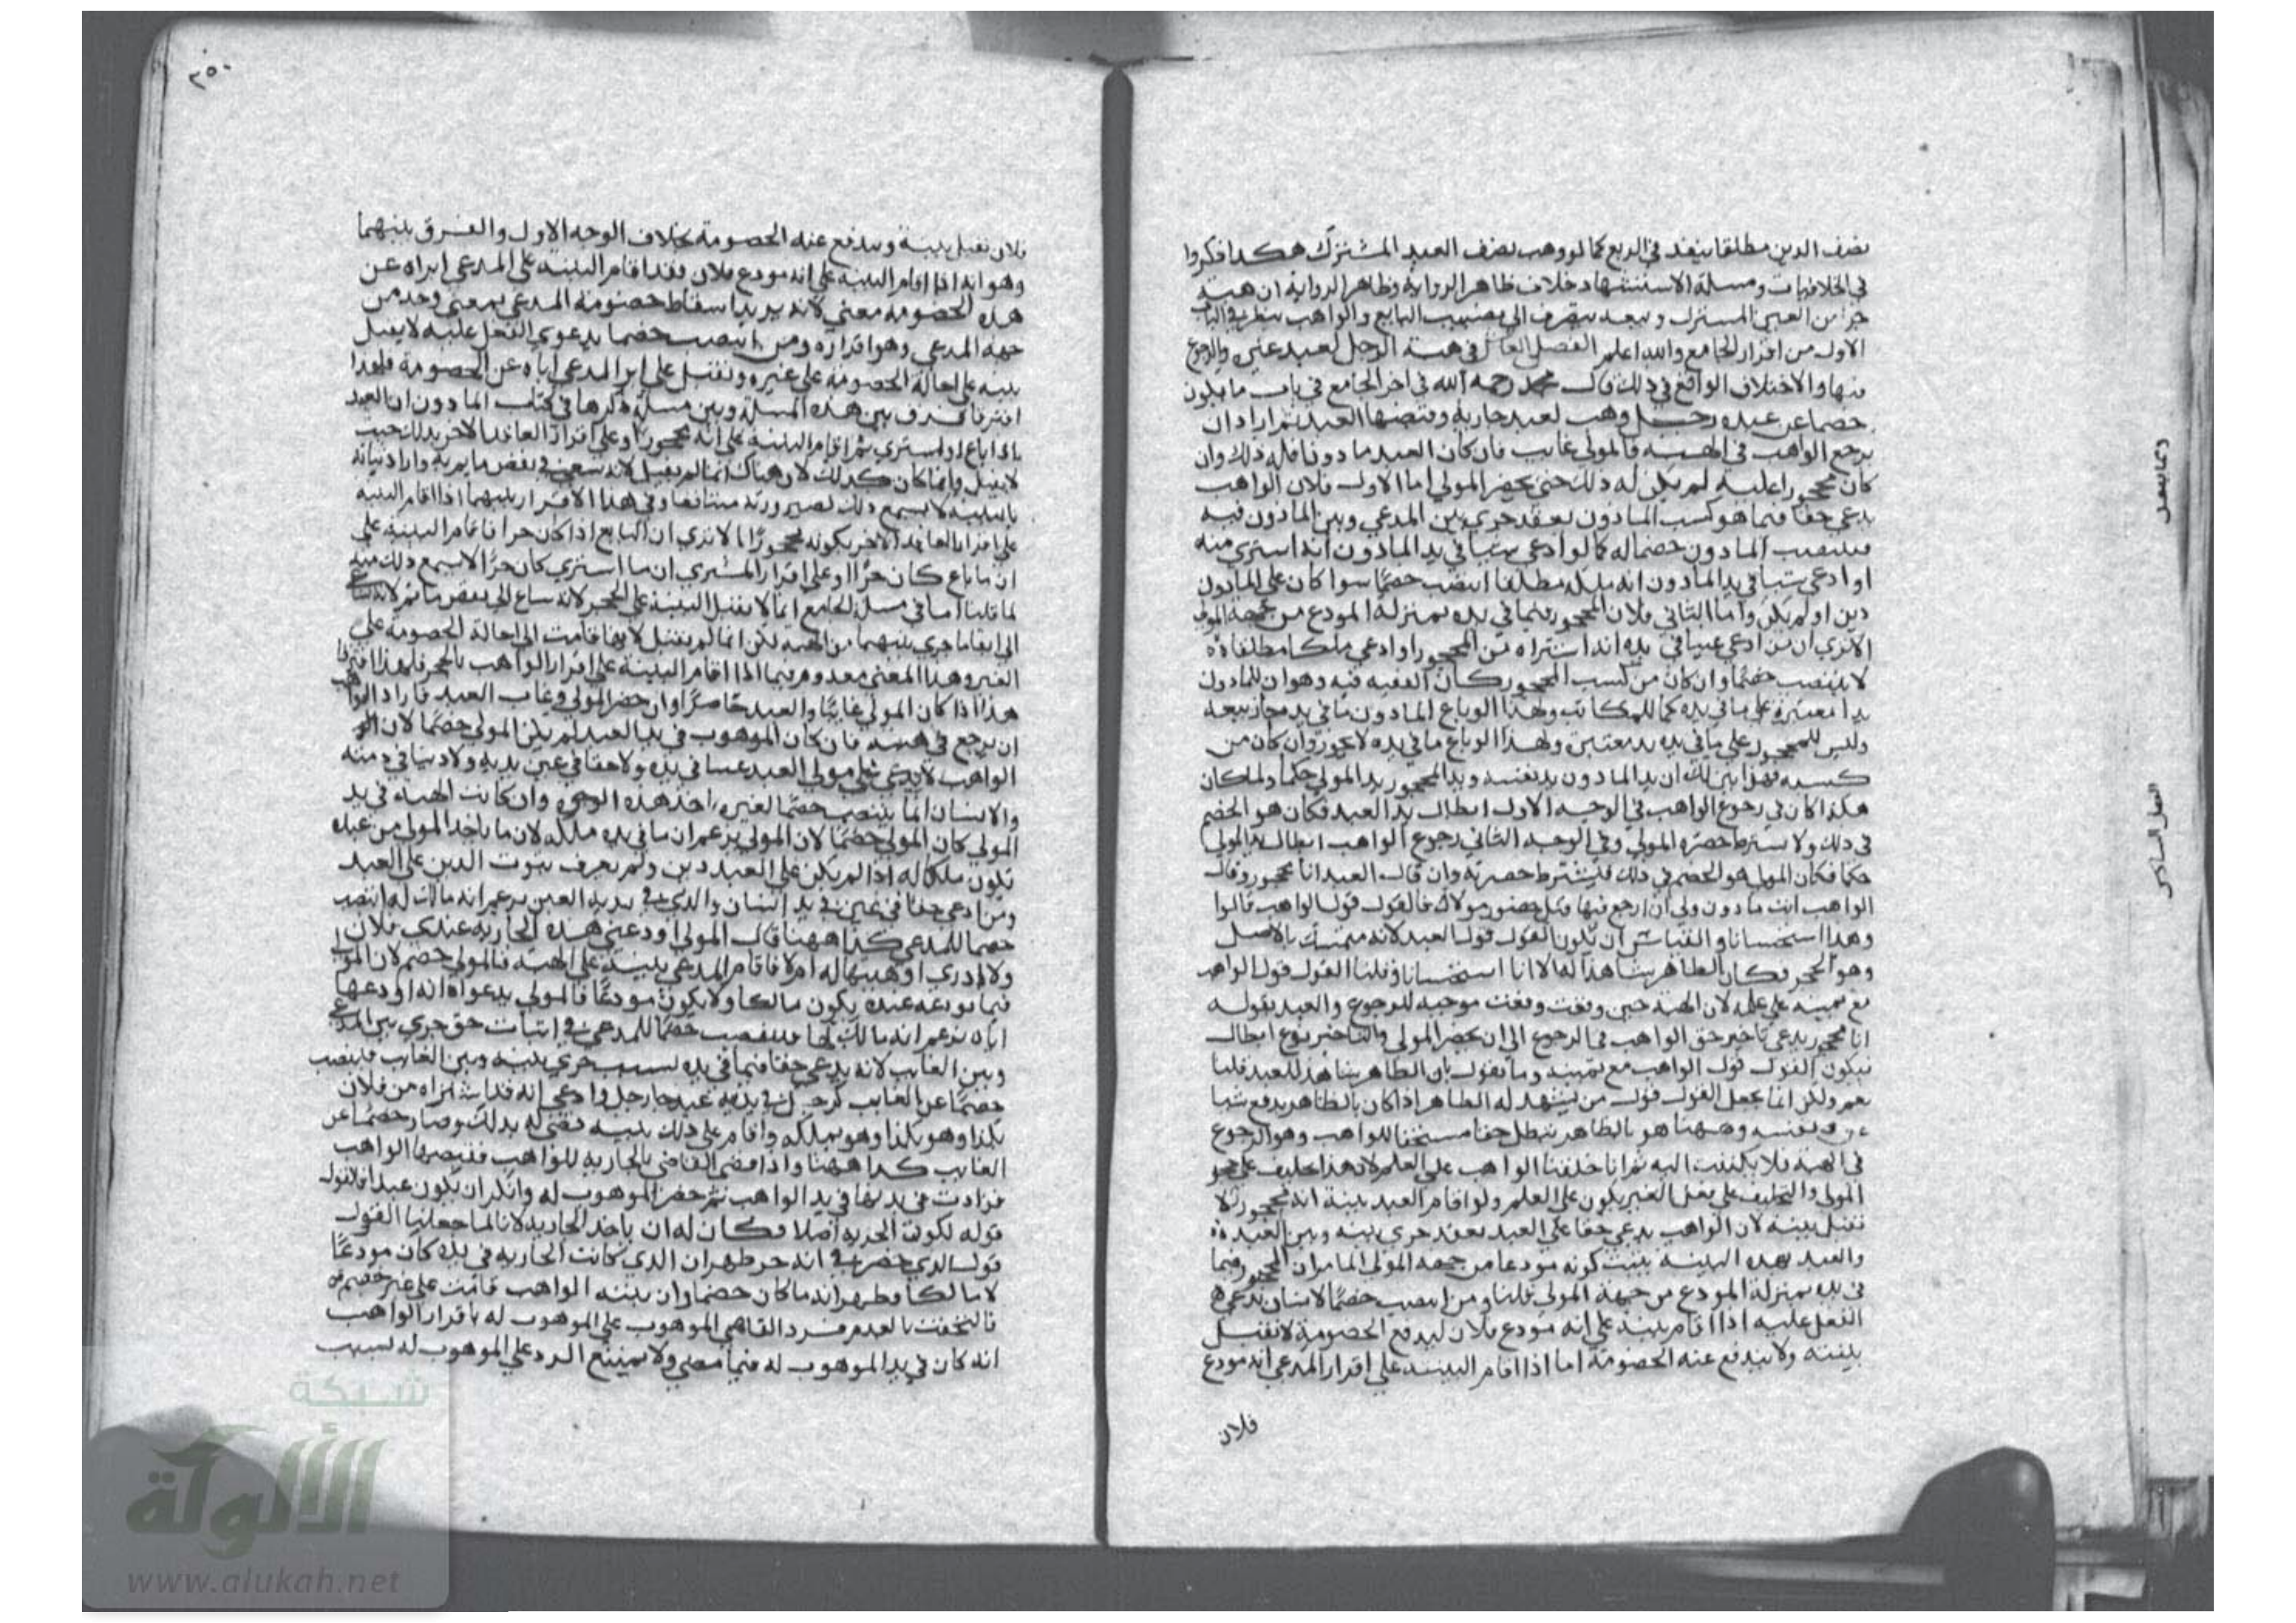 نصف الدين مطلقا ينفذ في الربع كما لو وهب نصف العبد المشترك هكذا ذكروا
في الخلافيات ومسلة الاستشهاد خلاف ظاهر الرواية وظاهر الرواية ان هبة
جزا من العين المشترك وبيعه يتصرف الي نصيب البايع والواهب ينظر في الباب
الاول من اقرار الجامع والله اعلم الفصل العاشر في هبة الرجل لعبد غيره والرجوع
فيها والاختلاف الواقع في ذلك قال محمد رحمه الله في اخر الجامع في باب ما يكون
خصما عن عبده رجل وهب لعبد جارية وقبضها العبد ثم اراد ان
يرجع الواهب في الهبة فالمولي غايب فان كان العبد ماذونا فله ذلك وان
كان محجورا عليه لم يكن له ذلك حتي يحضر المولي اما الاول فلان الواهب
يدعي حقا فيما هو كسب الماذون بعقد جري بين المدعي وبين الماذون فيه
فينتصب الماذون خصما له كما لو ادعي شيا في يد الماذون انه اشتري منه
او ادعي شيا في يد الماذون انه ملكه مطلقا انتصب خصما سوا كان علي الماذون
دين او لم يكن واما الثاني فلان المحجور فيما في يده بمنزلة المودع من جهة المولي
الا تري ان من ادعي عينا في يده انه اشتراه من المحجور او ادعي ملكا مطلقا
لا ينتصب خصما وان كان من كسب المحجور كان الفقه فيه وهو ان للماذون
يدا معتبرة علي ما في يده كما للمكاتب ولهذا لو باع الماذون ما في يده جاز بيعه
وليس للمحجور علي ما في يده يد معتبرة ولهذا لو باع ما في يده لا يجوز وان كان من
كسبه فهذا يبين لك ان يد الماذون يد نفسه ويد المحجور يد المولي حكما ولما كان
هكذا كان في رجوع الواهب في الوجه الاول ابطال يد العبد فكان هو الخصم
في ذلك ولا يشترط حضرة المولي وفي الوجه الثاني رجوع الواهب ابطال يد المولي
حكما فكان المولي هو الخصم في ذلك فيشترط حضرته وان قال العبد انا محجور وقال
الواهب انت ماذون ولي ان ارجع فيها وبكل حضور مولاك فالقول قول الواهب قالوا
وهذا استحسانا والقياس ان يكون القول قول العبد لانه متمسك بالاصل
وهو الحجر فكان الظاهر شاهدا له الا انا استحسانا وقلنا القول قول الواهب
مع يمينه علي علمه لان الهبة حين وقعت وقعت موجبه للرجوع والعبد بقوله
انا محجور يدعي تاخير حق الواهب في الرجوع الي ان يحضر المولي والتاخير نوع ابطال
فيكون القول قول الواهب مع يمينه وما نقول بان الظاهر شاهد للعبد قلنا
نعم ولكن انما يجعل القول قول من يشهد له الظاهر اذا كان بالظاهر يدفع شيا
عن نفسه وههنا هو بالظاهر يبطل حقا مستحقا للواهب وهو الرجوع
في الهبة فلا يلتفت اليه ثم انا حلفنا الواهب علي العلم لان هذا تحليف علي حجر
المولي والتحليف علي فعل الغير يكون علي العلم ولو اقام العبد بينة انه محجور لا
تقبل بينته لان الواهب يدعي حقا علي العبد بعقد جري بينه وبين العبد
والعبد بهذه البينة يثبت كونه مودعا من جهة المولي لما مر ان المحجور فيما
في يده بمنزلة المودع من جهة المولي قلنا ومن انتصب خصما لانسان بدعوي
الفعل عليه اذا اقام بينة علي انه مودع فلان ليدفع الخصومة لا تقبل
بينته ولا يندفع عنه الخصومة اما اذا اقام البينة علي اقرار المدعي انه مودع
فلان
٢٥٠
فلان تقبل بينة ويندفع عنه الخصومة بخلاف الوجه الاول والفرق بينهما
وهو انه اذا اقام البينة علي انه مودع فلان فقد اقام البينة علي المدعي ابراه عن
هذه الخصومه معني لانه يريد اسقاط خصومة المدعي بمعني وجد من
جهة المدعي وهو اقراره ومن انتصب خصما بدعوي الفعل عليه لا يقبل
بينه علي احالة الخصومة علي غيره وتقبل علي ابرا المدعي اياه عن الخصومة فلهذا
افترقا فرق بين هذه المسلة وبين مسلة ذكرها في كتاب الماذون ان العبد
اذا باع او اشتري ثم اقام البينة علي انه محجورا وعلي اقرار العاقد الاخر بذلك حيث
لا يقبل وانما كان كذلك لان هناك انما لم يقبل لانه سعي في نقض ما تم به واراد اثباته
بالبينة لا يسمع ذلك لصيرورته متناقضا وفي هذا الاقرار بينهما اذا اقام البينه
علي اقرار العاقد الاخر بكونه محجورا الا تري ان البايع اذا كان حرا فاقام البينة علي
ان ما باع كان حرا او علي اقرار المشتري ان ما اشتري كان حرا لا يسمع ذلك منه
لما قلنا اما في مسلة الجامع انما لا يقبل البينة علي الحجر لانه ساع الي نقض ما تم
الي ابقا ما جري بينهما من الهبة لكن انما لم يقبل لانها قامت الي احالة الخصومة علي
الغير وهذا المعني معدوم فيما اذا اقام البينة علي اقرار الواهب بالحجر فلهذا افترقا
هذا اذا كان المولي غايبا والعبد حاضرا وان حضر المولي وغاب العبد فاراد الواهب
ان يرجع في هبته فان كان الموهوب في يد العبد لم يكن المولي خصما لان
الواهب لا يدعي علي مولي العبد عينا في يده ولا حقا في عين يديه ولا دينا في ذمته
والانسان انما ينتصب خصما لغيره احد هذه الوجوه وان كانت الهبة في يد
المولي كان المولي خصما لان المولي يزعم ان ما في يده ملكه لان ما ياخذ المولي من عبده
يكون ملكا له اذا لم يكن علي العبد دين ولم يعرف ثبوت الدين علي العبد
ومن ادعي حقا في عين في يد انسان والذي في يديه العين يزعم انه مالك له انتصب
خصما للمدعي كذا ههنا قال المولي اودعني هذه الجاريه عبدي فلان
ولا ادري اوهبها له ام لا فاقام المدعي بينة علي الهبة فالمولي خصم لان المولي
فيما يودعه عبده يكون مالكا ولا يكون مودعا فالمولي بدعواه انه اودعها
اياه يزعم انه مالك لها فينتصب خصما للمدعي في اثبات حق جري بين المدعي
وبين الغايب لانه يدعي حقا فيما في يده بسبب جري بينه وبين الغايب فينتصب
خصما عن الغايب كرجل في يديه عبد جا رجل وادعي انه قد اشتراه من فلان
بكذا وهو بكذا وهو يملكه واقام علي ذلك بينه فقضي له بذلك وصار خصما عن
الغايب كذا ههنا واذا قضي القاضي بالجاريه للواهب فقبضها الواهب
فزادت في بدنها في يد الواهب ثم حضر الموهوب له وانكر ان يكون عبدا فالقول
قوله لكون الحرية اصلا فكان له ان ياخذ الجاريه لانا لما جعلنا القول
قول الذي حضر في انه حر ظهر ان الذي كانت الجاريه في يده كان مودعا
لا مالكا وظهر انه ما كان خصما وان بينه الواهب قامت علي غير خصم
فالتحقت بالعدم فرد القاضي الموهوب علي الموهوب له باقرار الواهب
انه كان في يد الموهوب له فيما مضي ولا يمتنع الرد علي الموهوب له بسبب
شبكة
الألوكة
www.alukah.net